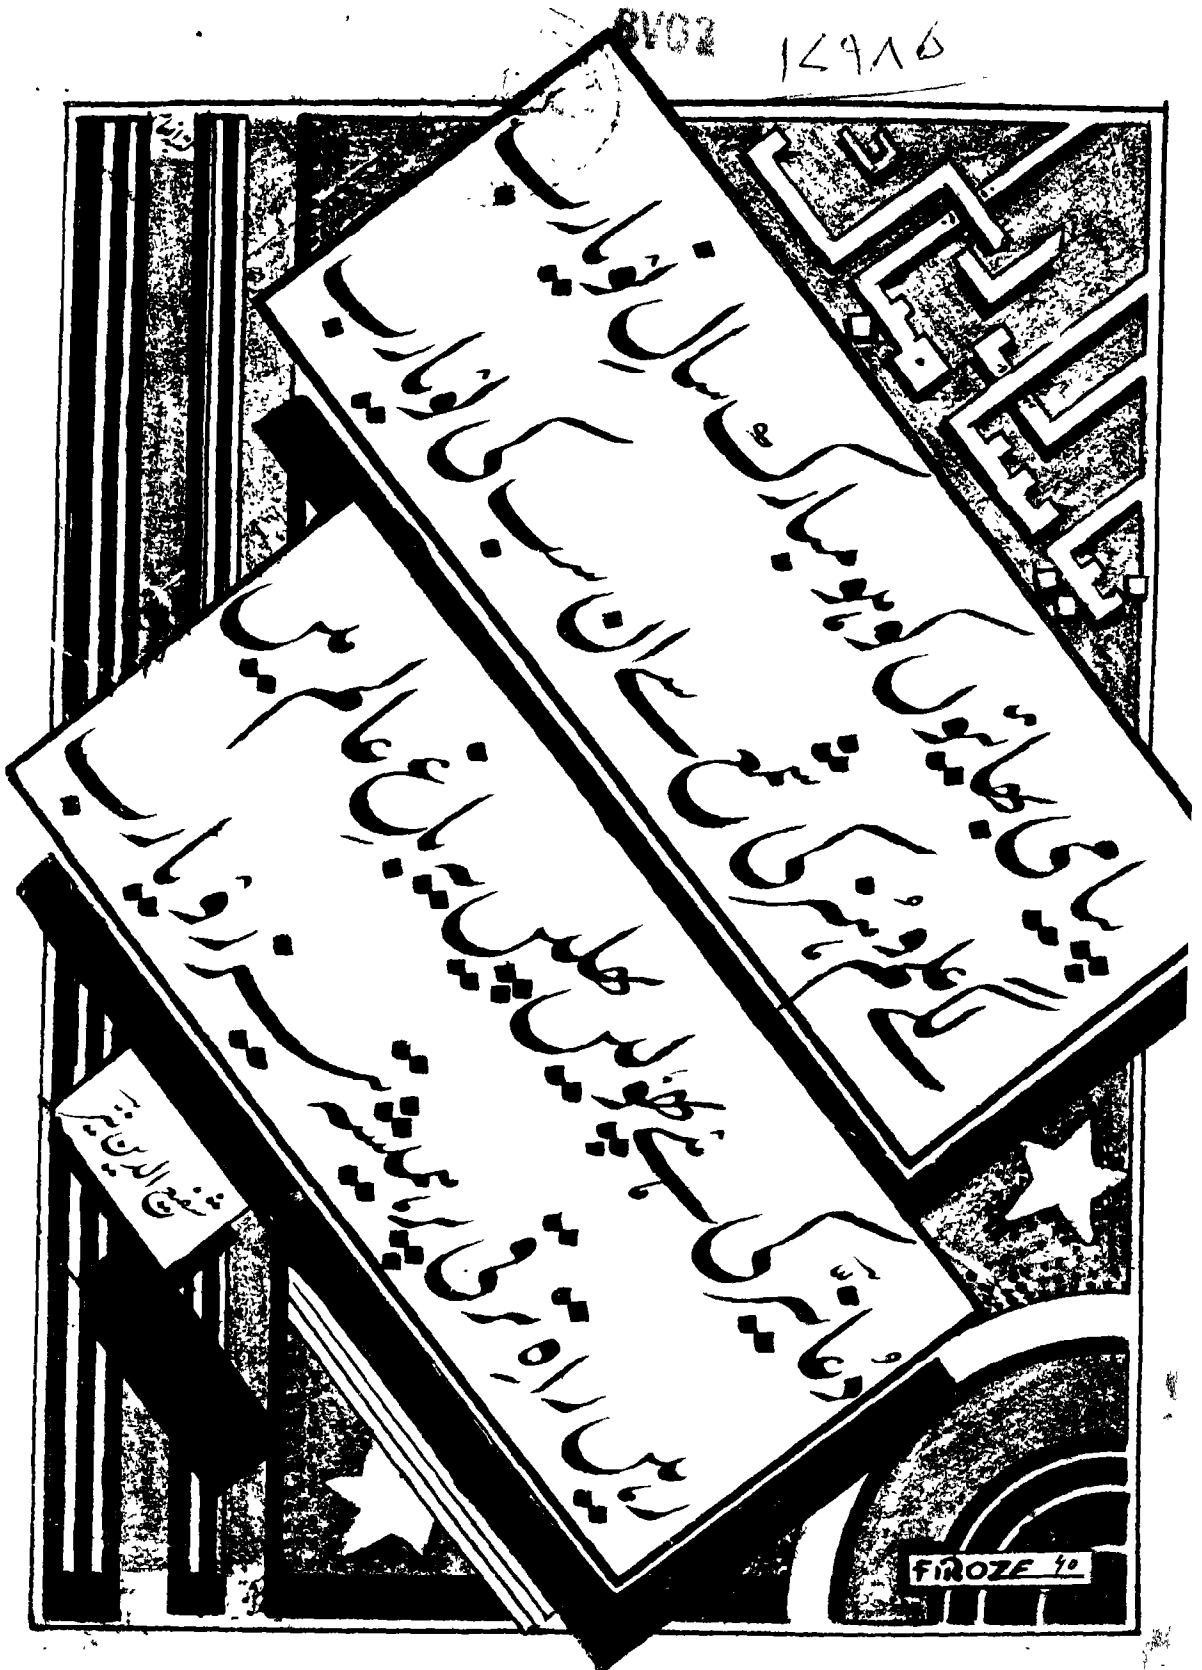 BVG2
۱۷۹۸۵
پیامی بھائیوں کو ہو مبارک سالِ نَو یارب
لگے علم و ہنر کی شمع سے ان سب کی لَو یارب
دُعا نیّر کی ہے پھولیں پھلیں یہ باغِ عالم میں
رہیں راہِ ترقی پر ہمیشہ تیز رَو یارب
شفیع الدین نیّر
FIROZE 40